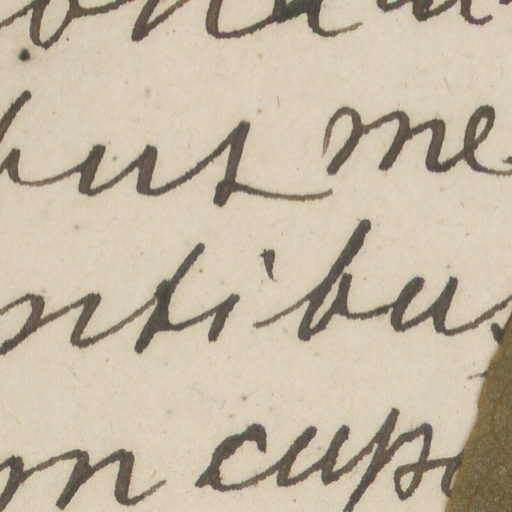 bus me
ntibus
m cup